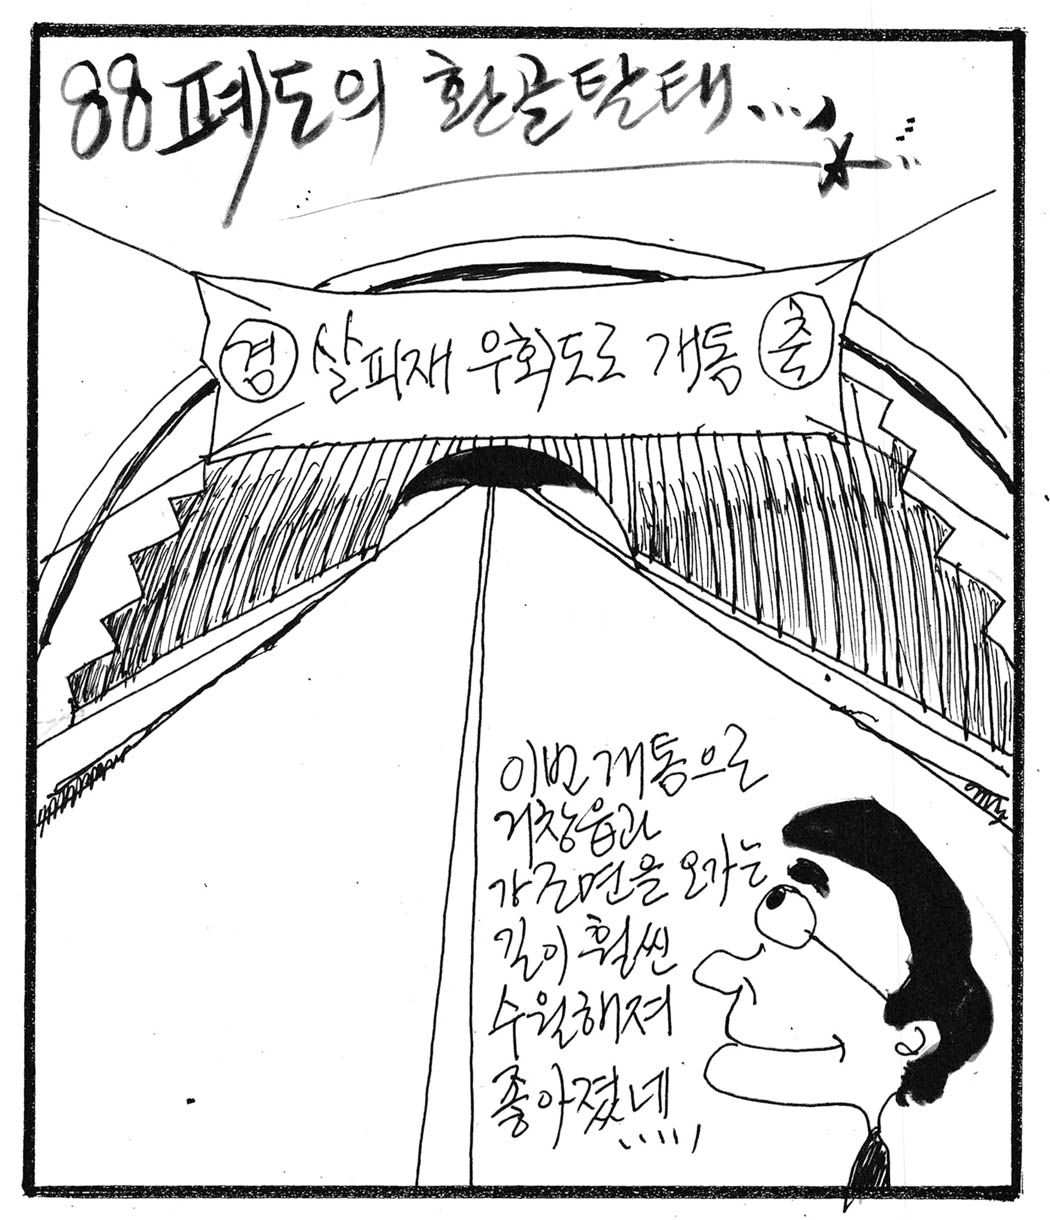 88폐도의 환골탈태....
경 살피재 우회도로 개통 축
이번 개통으로
거창읍과
가조면을 오가는
길이 훨씬
수월해져
좋아졌네.....